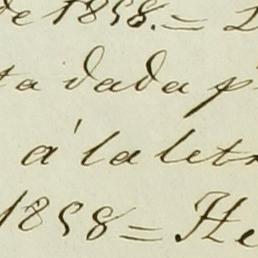 de 1858. =
ta dada p
á la letr
1858 = He